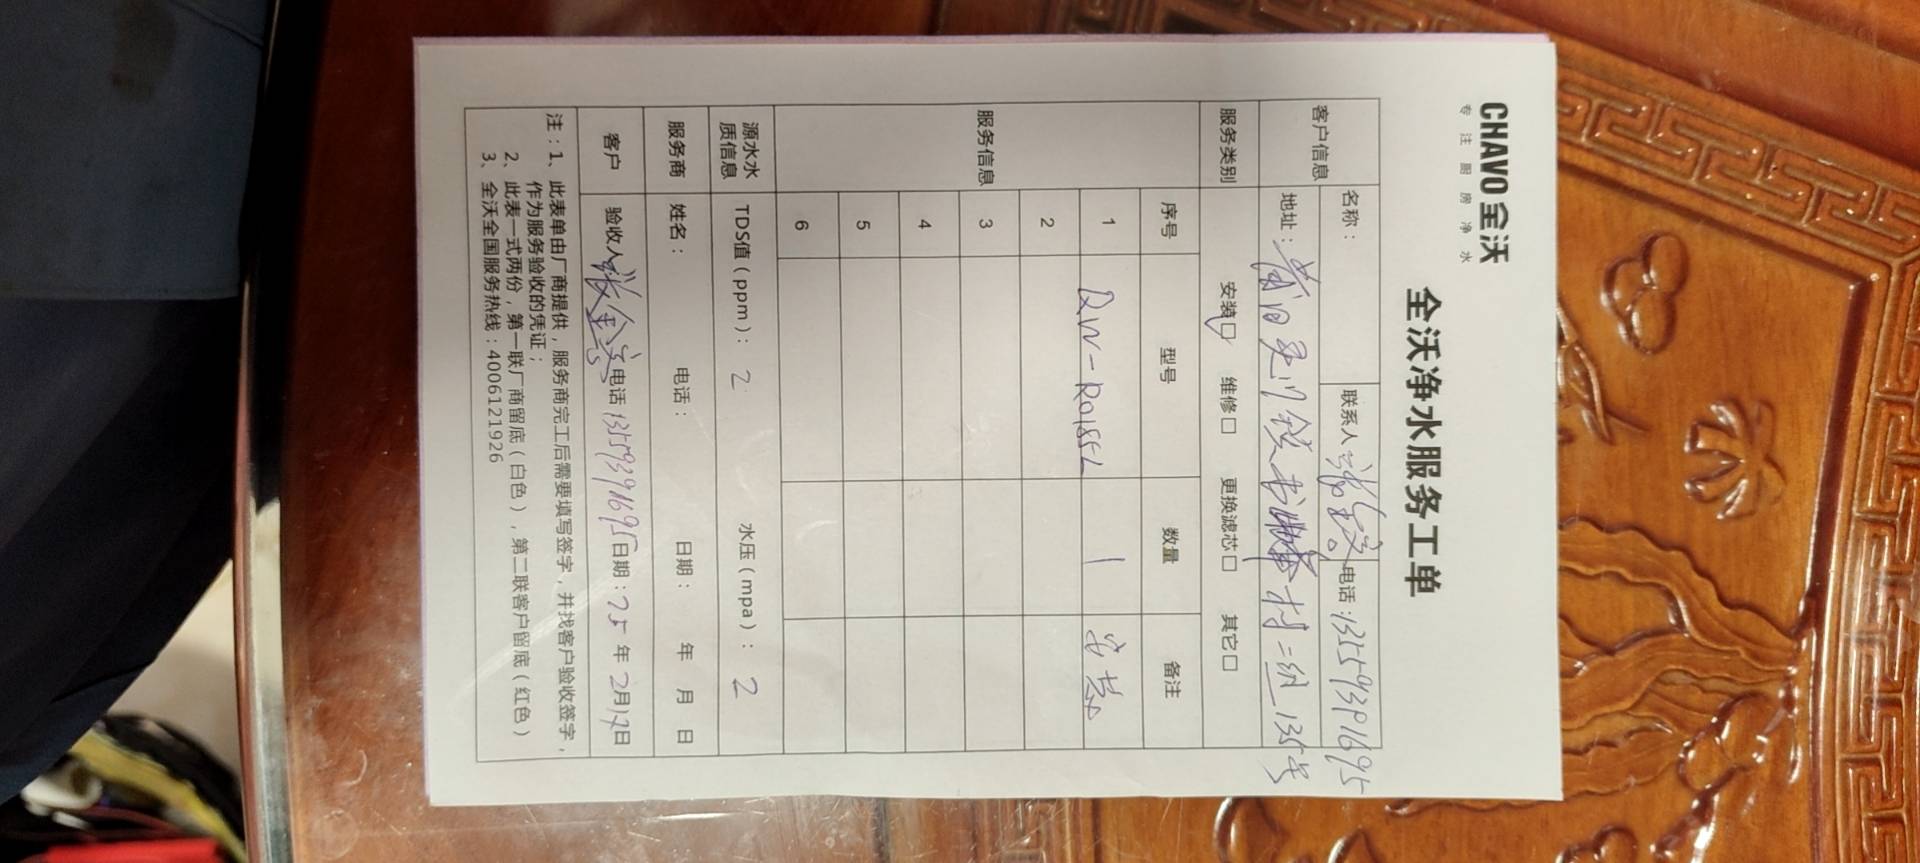 CHAVO 全沃
专注厨房净水
全沃净水服务工单
客户信息 名称： 联系人 电话：13559391695
地址：莆田 镇 村二组135号
服务类别 安装☑ 维修□ 更换滤芯□ 其它□
服务信息 序号 型号 数量 备注
1 QW-RO185L 1 安装
2
3
4
5
6
源水水质信息 TDS值（ppm）：2 水压（mpa）：2
服务商 姓名： 电话： 日期： 年 月 日
客户 验收人 电话13559391695日期：25年2月17日
注：1、此表单由厂商提供，服务商完工后需要填写签字，并找客户验收签字，
作为服务验收的凭证；
2、此表一式两份，第一联厂商留底（白色），第二联客户留底（红色）
3、全沃全国服务热线：4006121926